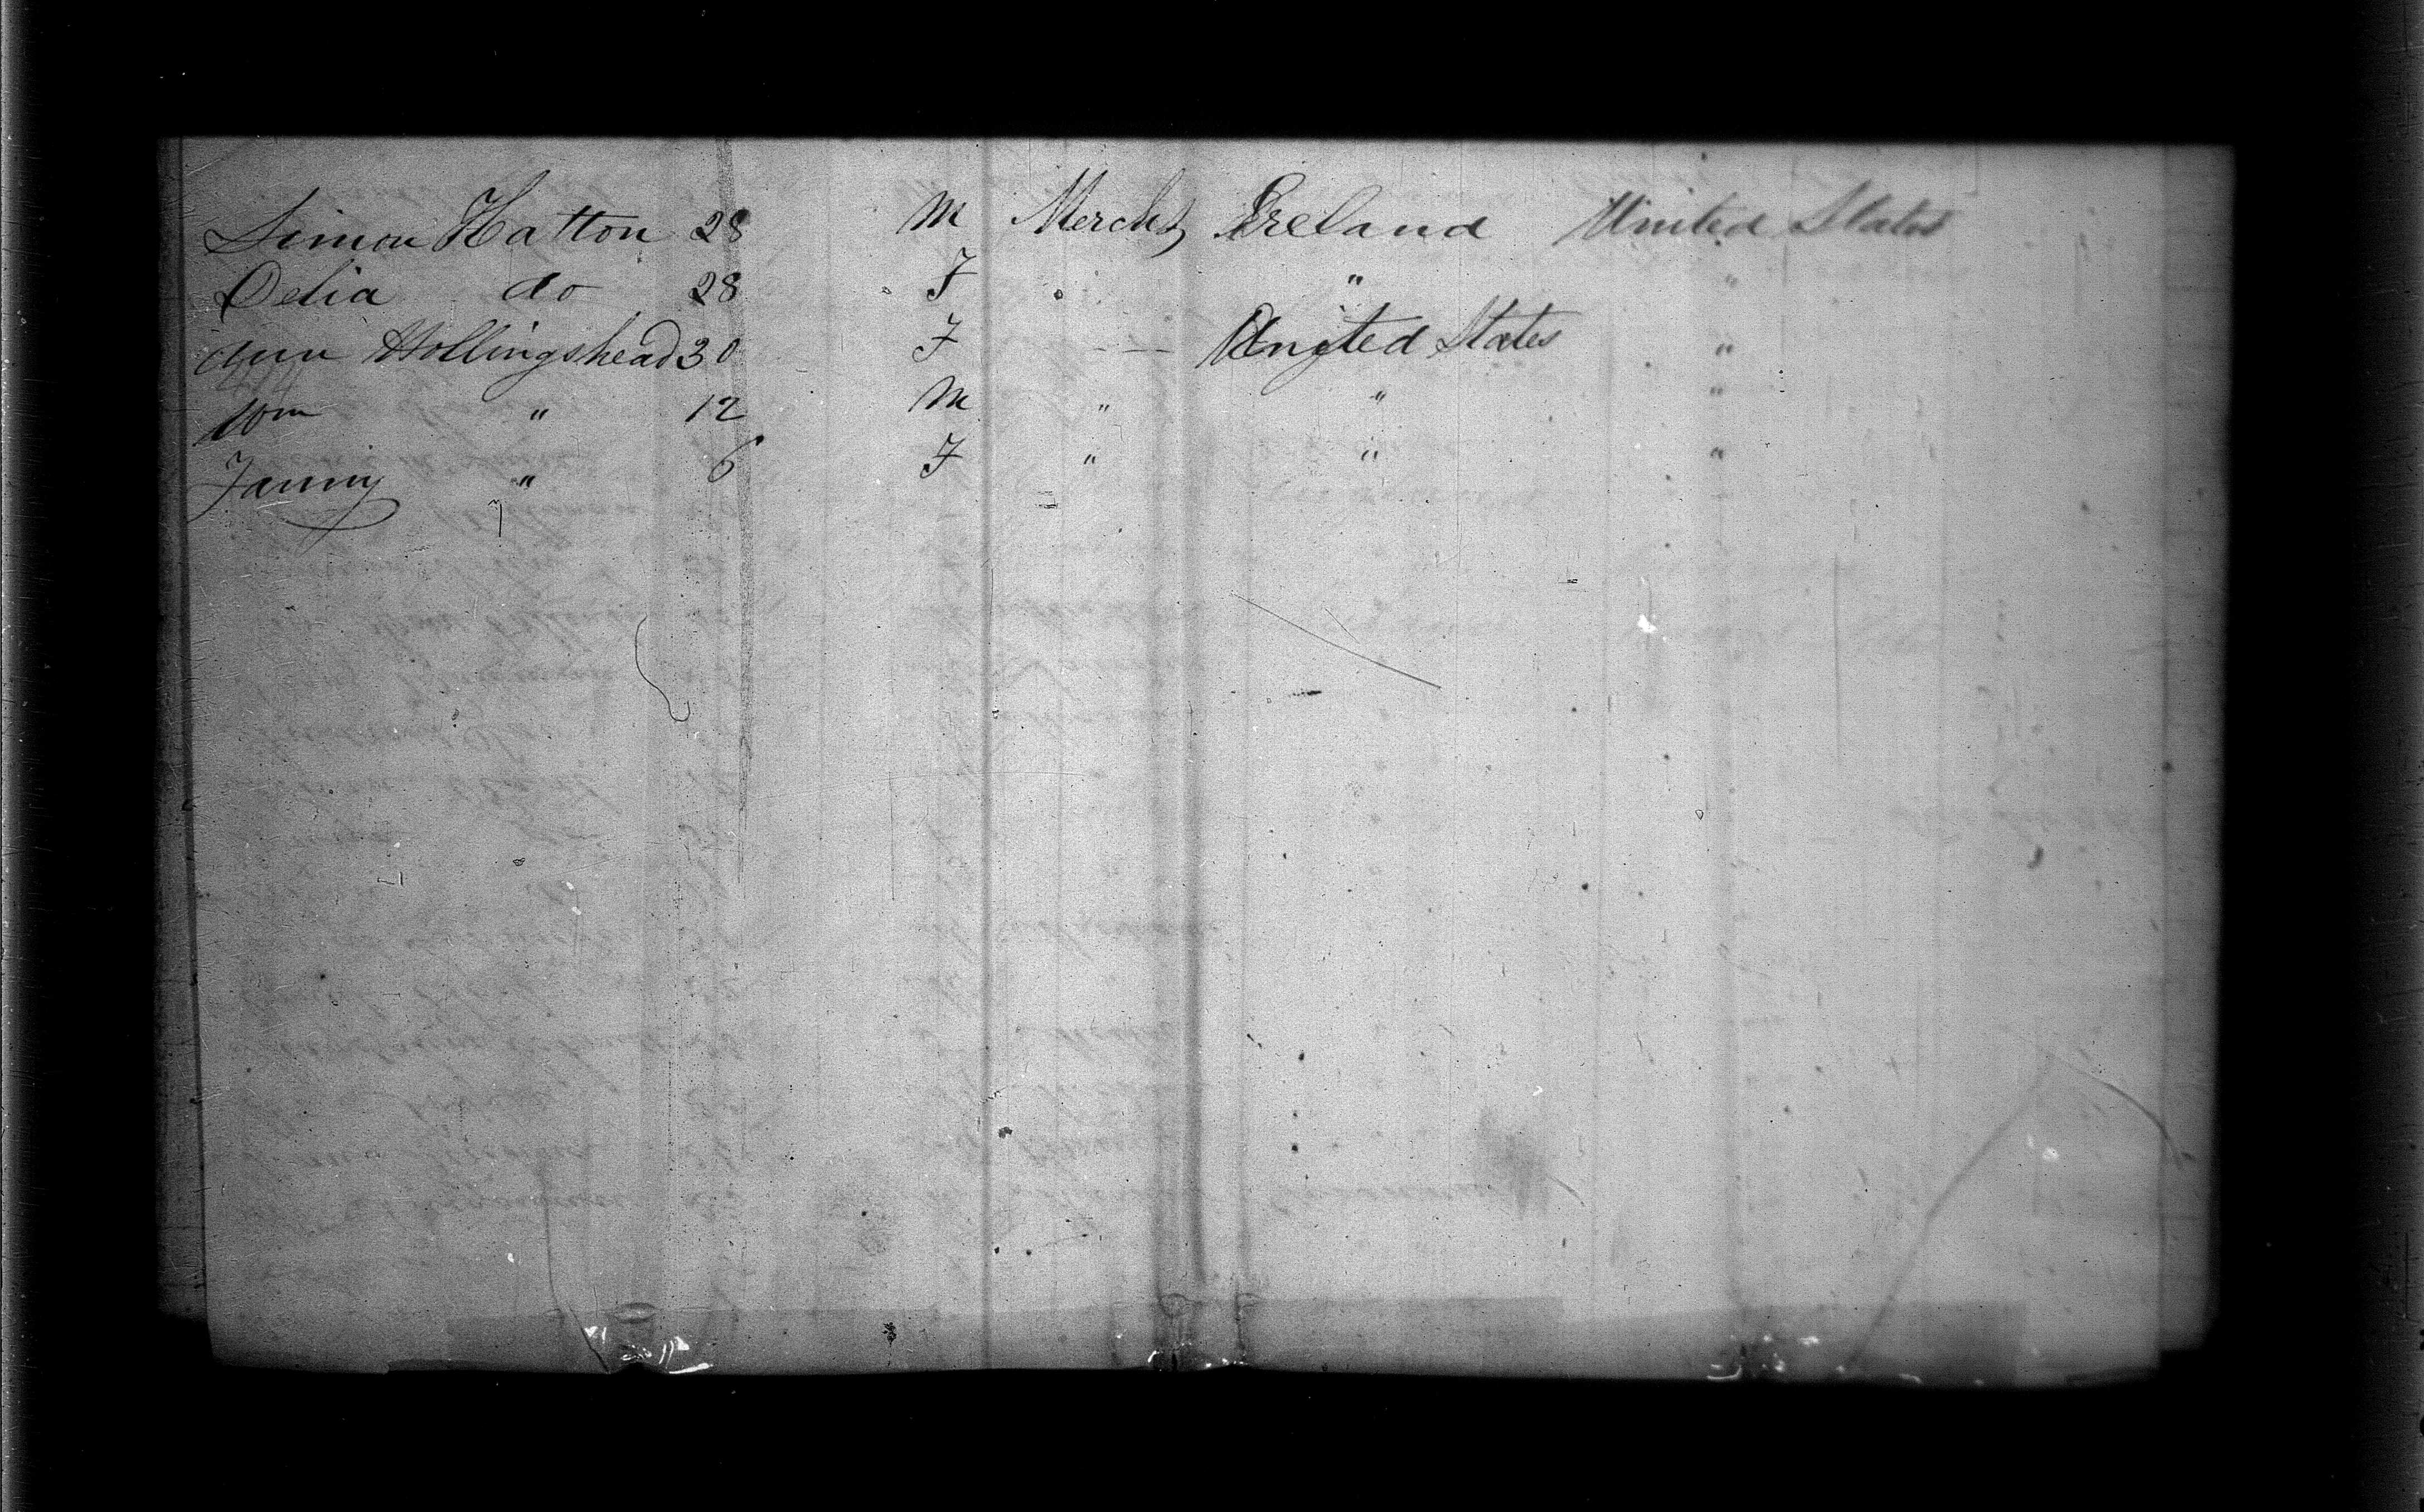 Simon Hatton 28 M Mercht Ireland United States
Delia do 28 F " "
Ann Hollingshead 30 F — United States "
Wm " 12 M " " "
Fanny " 6 F " " "